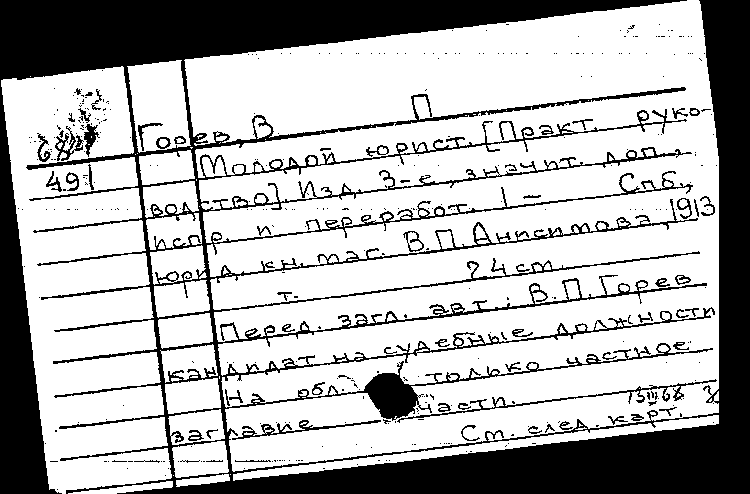 Горев, В П
68
491
Молодой юрист. [Практ. руко-
водство]. Изд. 3-е, значит. доп.,
испр. и переработ. 1 — Спб.,
юрид. кн. маг. В.П.Анисимова, 1913
т. 24 см.
Перед. загл. авт.: В.П.Горев
кандидат на судебные должности
На обл. только частное
заглавие части.
15 III 68
См. след. карт.